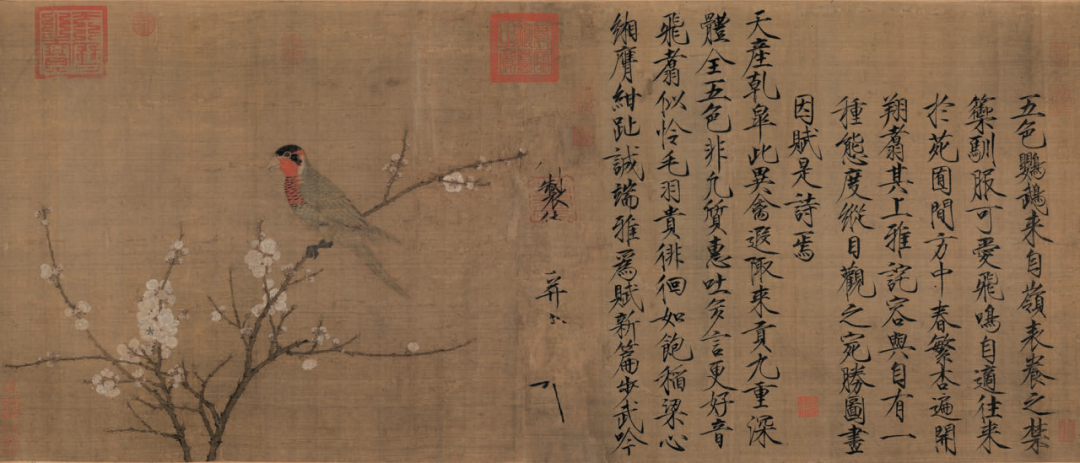 五色鸚鵡來自嶺表養之禁
籞馴服可愛飛鳴自適往來
於苑囿間方中春繁杏遍開
翔翥其上雅詫容與自有一
種態度縱目觀之宛勝圖畫
因賦是詩焉
天產乾皐此異禽遐陬來貢九重深
體全五色非凡質惠吐多言更好音
飛翥似怜毛羽貴徘徊如飽稻粱心
緗膺紺趾誠端雅爲賦新篇步武吟
製
并